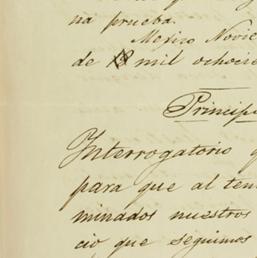 na prueba.
Mexico Novie
de 18 mil ochocie
Principa
Interrogatorio q
para que al ten
minados nuestros
cio que seguimos